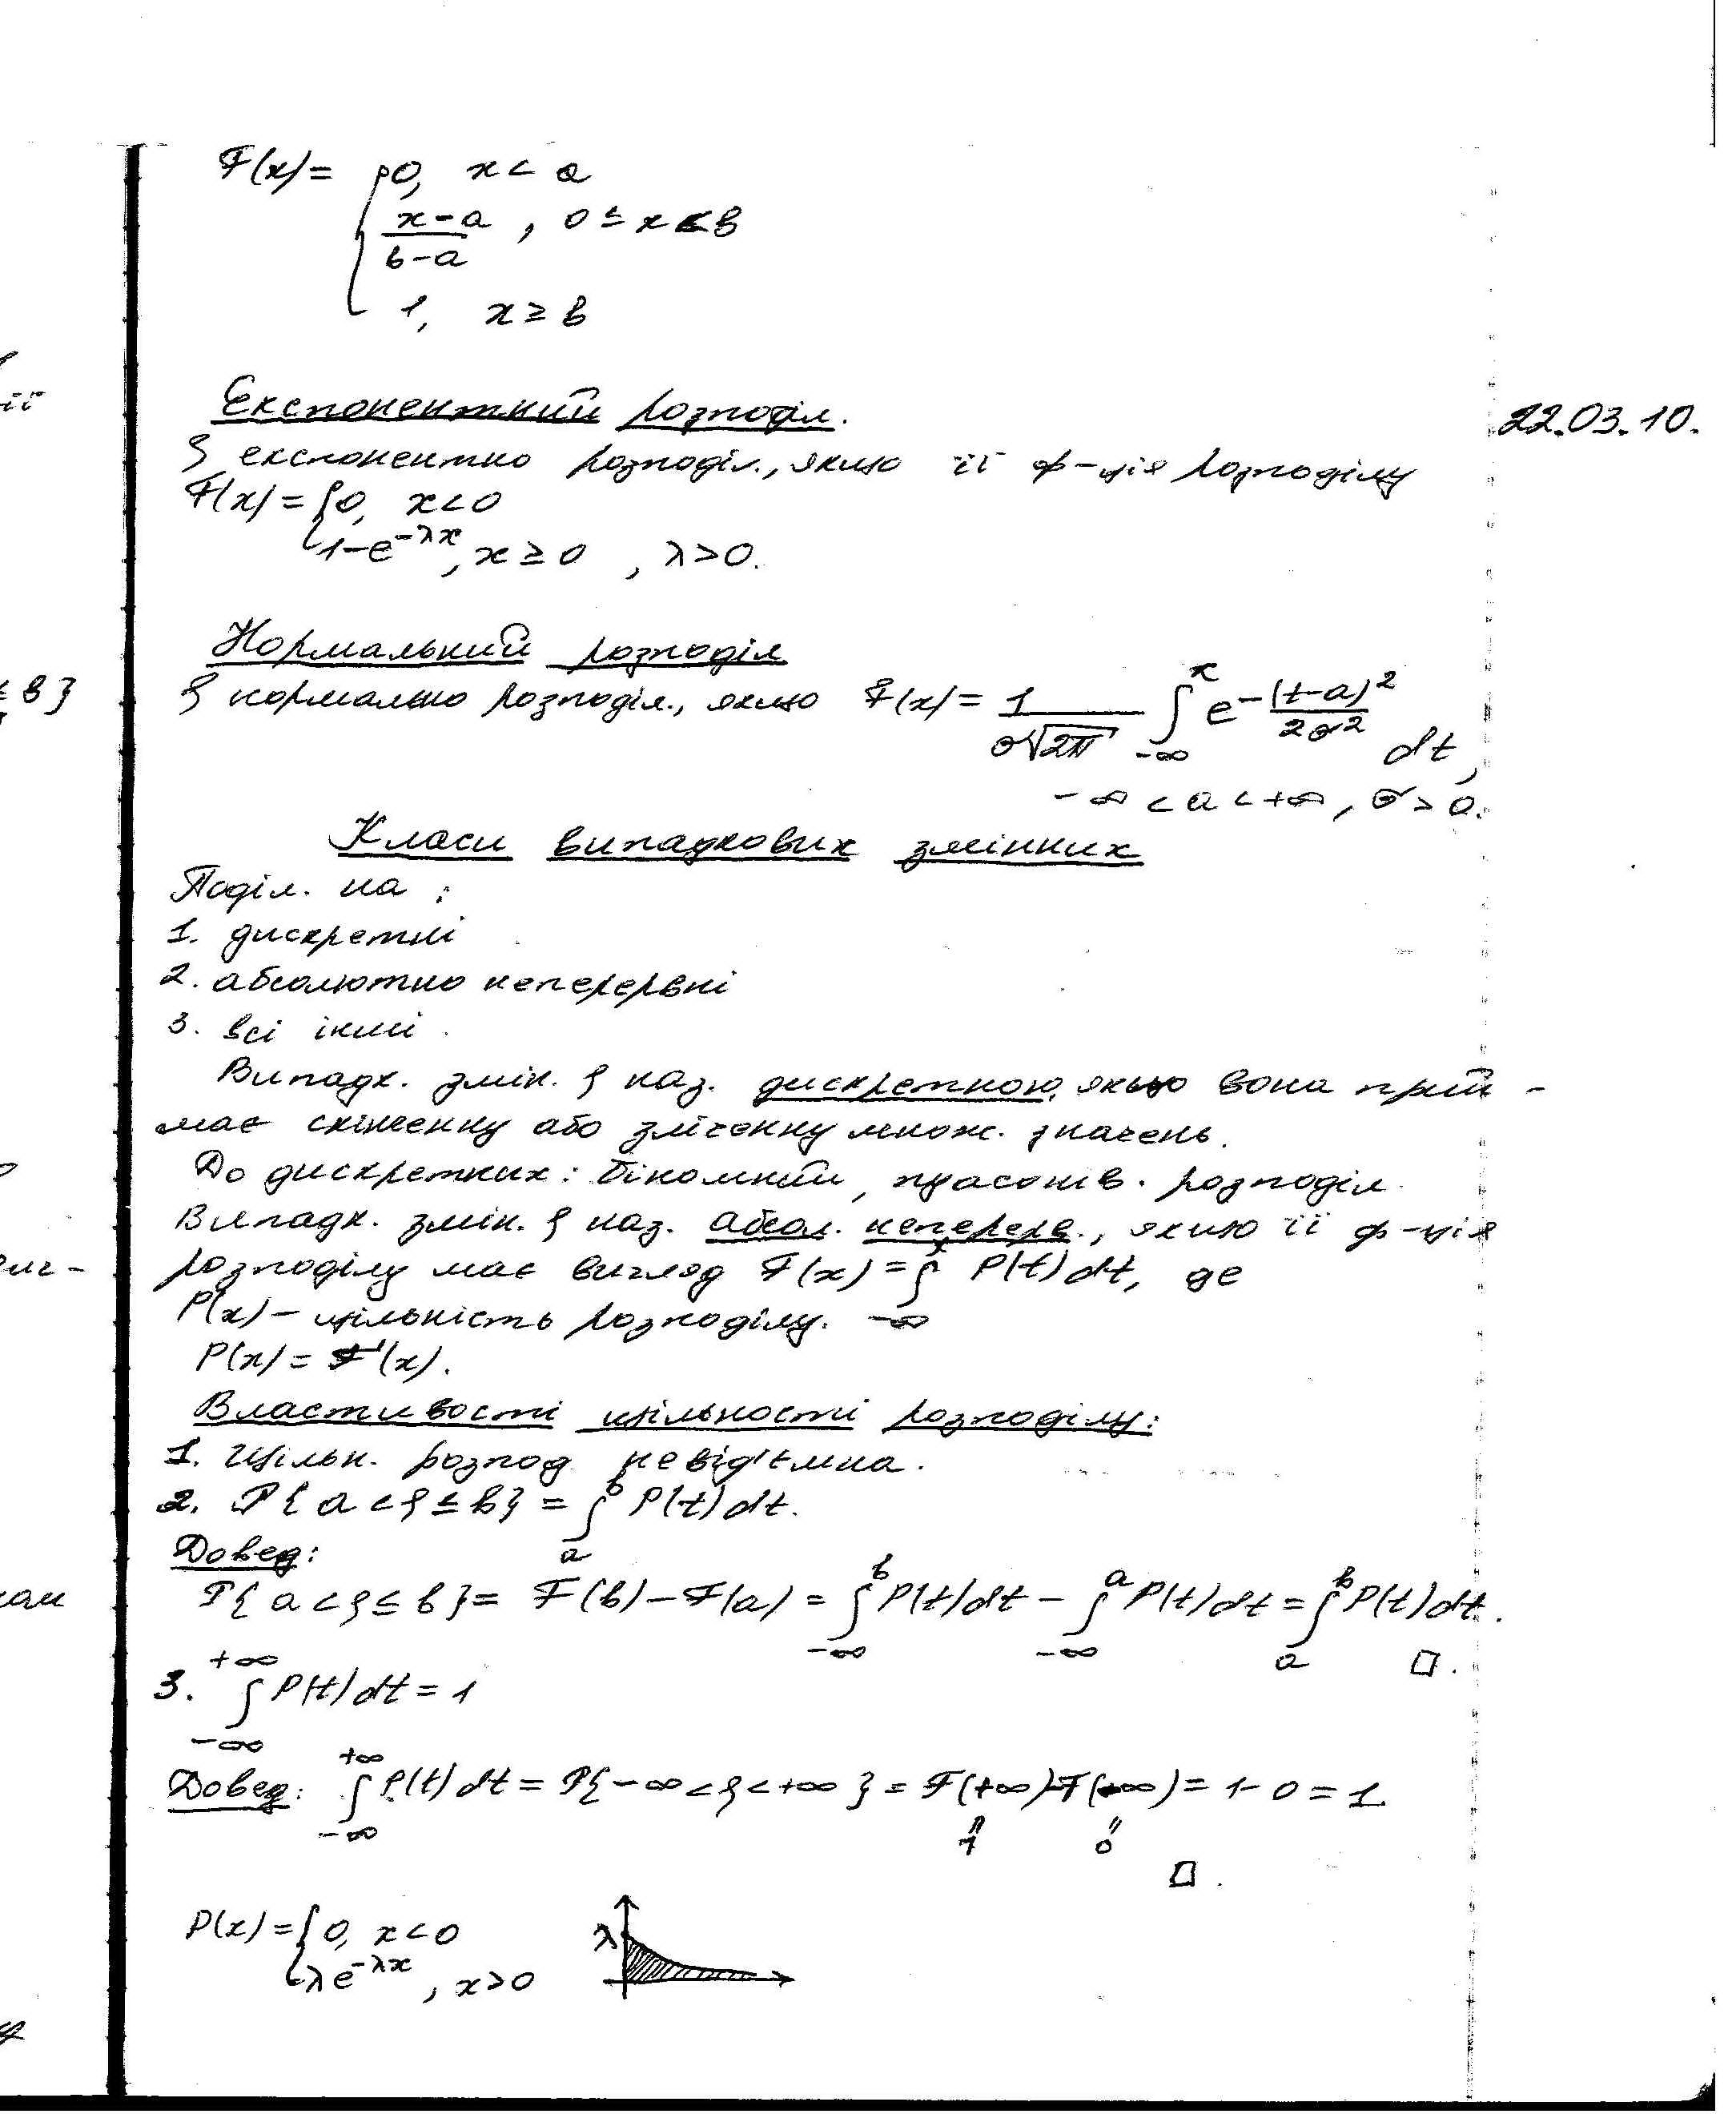 F(x) = { 0, x < a
x-a / b-a , 0 ≤ x < b
1, x ≥ b
Експонентний розподіл.
22.03.10.
ξ експонентно розподіл., якщо її ф-ція розподілу
F(x) = { 0, x < 0
1-e^{-λx}, x ≥ 0 , λ > 0.
Нормальний розподіл
ξ нормально розподіл., якщо F(x) = 1/(σ√2π) ∫_{-∞}^{x} e^{-(t-a)²/2σ²} dt,
-∞ < a < +∞, σ > 0.
Класи випадкових змінних
Поділ. на :
1. дискретні
2. абсолютно неперервні
3. всі інші .
Випадк. змін. ξ наз. дискретною, якщо вона прий-
має скінченну або зліченну множ. значень.
До дискретних: біномний, пуасонів. розподіл.
Випадк. змін. ξ наз. абсол. неперерв., якщо її ф-ція
розподілу має вигляд F(x) = ∫_{-∞}^{x} P(t)dt, де
P(x) – щільність розподілу.
P(x) = F'(x).
Властивості щільності розподілу:
1. Щільн. розпод. невід'ємна.
2. P{a < ξ ≤ b} = ∫_{a}^{b} P(t)dt.
Довед:
P{a < ξ ≤ b} = F(b) – F(a) = ∫_{-∞}^{b} P(t)dt – ∫_{-∞}^{a} P(t)dt = ∫_{a}^{b} P(t)dt.
□.
3. ∫_{-∞}^{+∞} P(t)dt = 1
Довед: ∫_{-∞}^{+∞} P(t)dt = P{-∞ < ξ < +∞} = F(+∞)-F(-∞) = 1-0 = 1.
" "
1 0
□.
P(x) = { 0, x < 0
λe^{-λx}, x > 0
λ